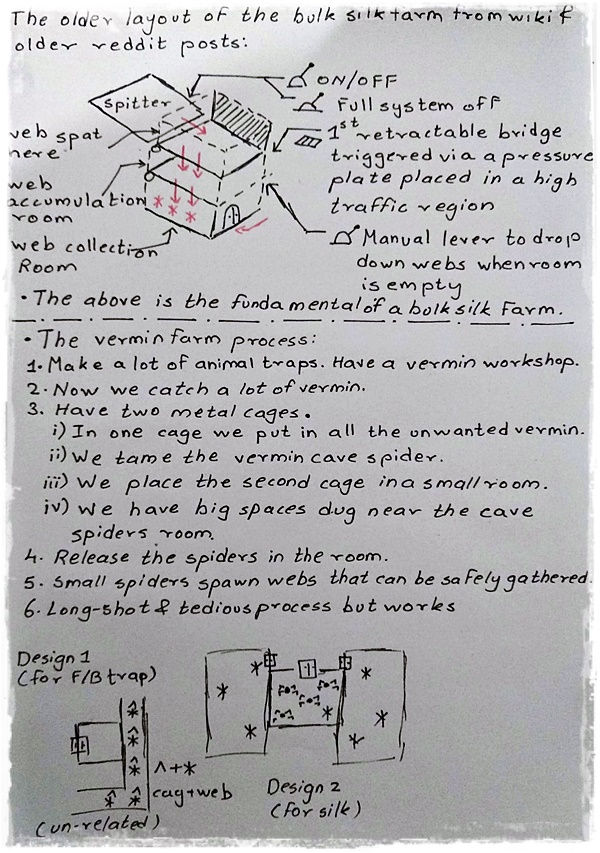 The older layout of the bulk silk farm from wiki &
older reddit posts:
Spitter
ON/OFF
Full system off
web spat
here
1st retractable bridge
triggered via a pressure
plate placed in a high
traffic region
web
accumulation
room
web collection
Room
Manual lever to drop
down webs when room
is empty
• The above is the fundamental of a bulk silk Farm.
• The vermin farm process:
1. Make a lot of animal traps. Have a vermin workshop.
2. Now we catch a lot of vermin.
3. Have two metal cages.
i) In one cage we put in all the unwanted vermin.
ii) We tame the vermin cave spider.
iii) We place the second cage in a small room.
iv) We have big spaces dug near the cave
spiders room.
4. Release the spiders in the room.
5. Small spiders spawn webs that can be safely gathered.
6. Long-shot & tedious process but works
Design 1
(for F/B trap)
^ + *
cag + web
(un-related)
Design 2
(for silk)